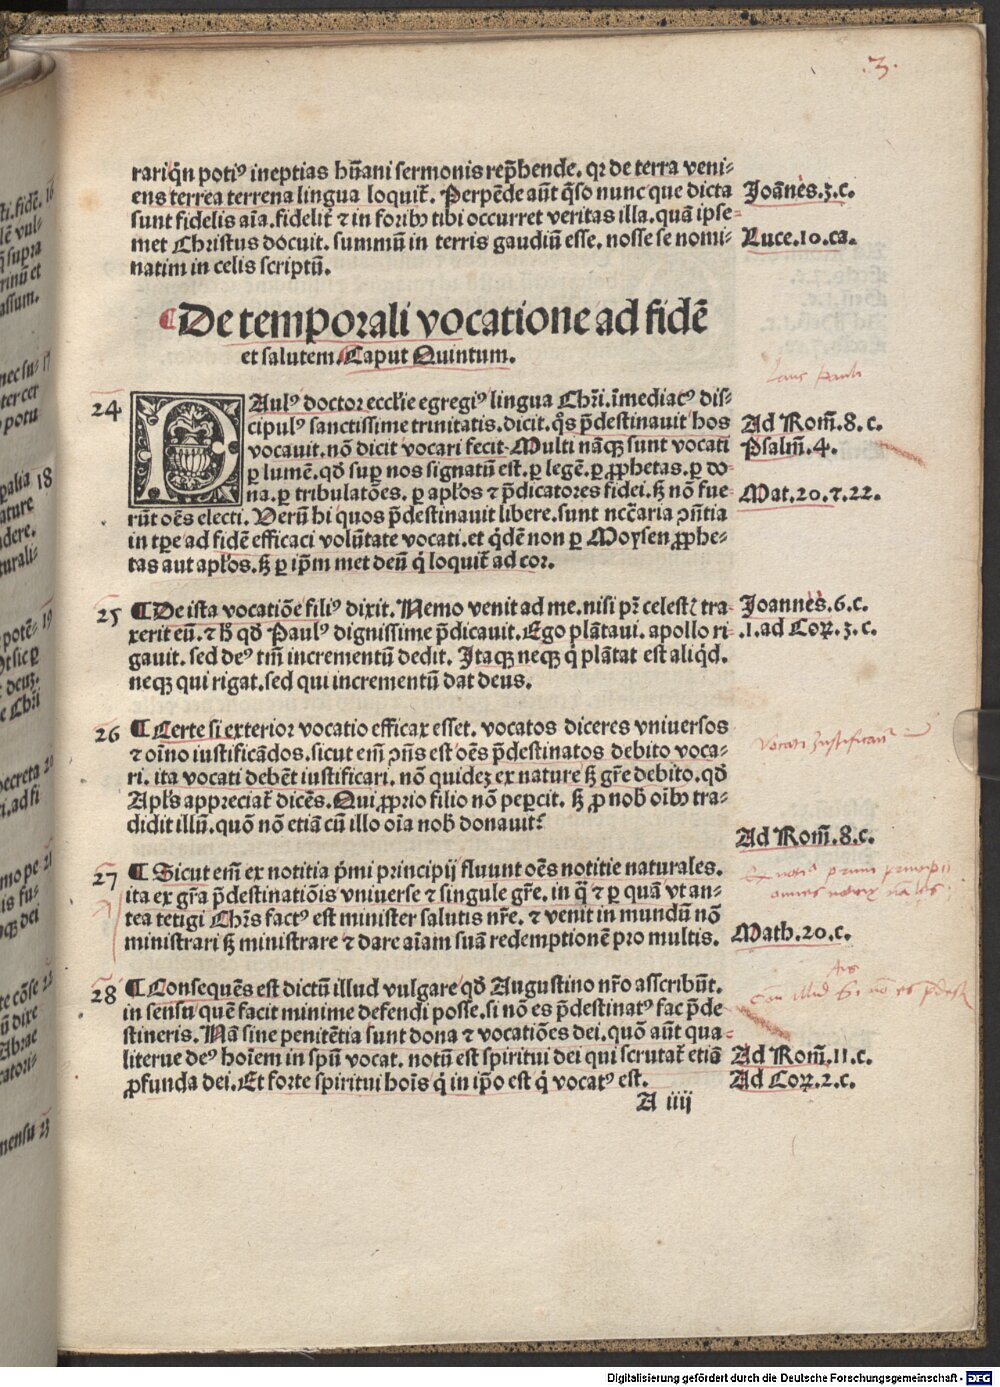 .3.
rariq̄n potiꝰ ineptias hūani sermonis rep̄hende. qꝛ de terra veni-
ens terrea terrena lingua loquit̄. Perpēde aūt q̄so nunc que dicta
Joānes.3.c.
sunt fidelis aīa. fidelit̄ ⁊ in foribꝰ tibi occurret veritas illa. quā ipse-
met Christus docuit. summū in terris gaudiū esse. nosse se nomi-
Luce.10.ca.
natim in celis scriptū.
¶De temporali vocatione ad fidē
et salutem. Caput Quintum.
24
PAulꝰ doctor eccl'ie egregiꝰ lingua Chr̄i. īmediatꝰ dis-
cipulꝰ sanctissime trinitatis. dicit. q̄s p̄destinauit hos
Ad Rom̄.8.c.
vocauit. nō dicit vocari fecit. Multi nāqꝫ sunt vocati
Psalm̄.4.
ꝑ lumē. qd̄ suꝑ nos signatū est. ꝑ legē. ꝑ ꝓphetas. ꝑ do-
na. ꝑ tribulatōes. ꝑ apl'os ⁊ p̄dicatores fidei. sꝫ nō fue-
Mat.20.⁊.22.
rūt oēs electi. Verū hi quos p̄destinauit libere. sunt ncc̄aria ꝯn̄tia
in tp̄e ad fidē efficaci volūtate vocati. et q̇dē non ꝑ Moysen ꝓphe-
tas aut apl'os. sꝫ ꝑ ip̄m met deū q̇ loquit̄ ad cor.
25
¶De ista vocatiōe filiꝰ dixit. Nemo venit ad me. nisi pr̄ celestꝭ tra-
Joannes.6.c.
xerit eū. ⁊ h̄ qd̄ Paulꝰ dignissime p̄dicauit. Ego plātaui. apollo ri-
.1.ad Coꝝ.3.c.
gauit. sed deꝰ tm̄ incrementū dedit. Itaqꝫ neqꝫ q̇ plātat est aliq̇d.
neqꝫ qui rigat. sed qui incrementū dat deus.
26
¶Certe si exterior vocatio efficax esset. vocatos diceres vniuersos
⁊ oīno iustificādos. sicut em̄ ꝯn̄s est oēs p̄destinatos debito voca-
ri. ita vocati debēt iustificari. nō quideꝫ ex nature sꝫ gr̄e debito. qd̄
Apl's appreciat̄ dicēs. Qui ꝓprio filio nō peꝑcit. sꝫ ꝓ nob̄ oībꝰ tra-
didit illū. quō nō etiā cū illo oīa nob̄ donauit?
Ad Rom̄.8.c.
27
¶Sicut em̄ ex notitia p̄mi principij fluunt oēs notitie naturales.
ita ex gr̄a p̄destinatiōis vniuerse ⁊ singule gr̄e. in q̄ ⁊ ꝑ quā vt an-
tea tetigi Chr̄s factꝰ est minister salutis nr̄e. ⁊ venit in mundū nō
ministrari sꝫ ministrare ⁊ dare aīam suā redemptionē pro multis.
Math.20.c.
28
¶Consequēs est dictū illud vulgare qd̄ Augustino nr̄o asscribūt.
in sensu quē facit minime defendi posse. si nō es p̄destinatꝰ fac p̄de
stineris. Nā sine penitētia sunt dona ⁊ vocatiōes dei. quō aūt qua-
literue deꝰ hoīem in spū vocat. notū est spiritui dei qui scrutat̄ etiā
Ad Rom̄.11.c.
ꝓfunda dei. Et forte spiritui hoīs q̇ in ip̄o est q̇ vocatꝰ est.
Ad Coꝝ.2.c.
A iiij
Digitalisierung gefördert durch die Deutsche Forschungsgemeinschaft - DFG